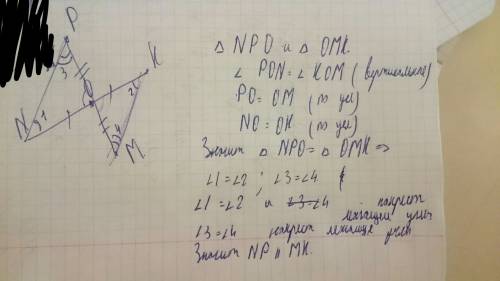 P
3
K
O
2
N
1
4
M
△ NPO и △ OMK.
∠ PON = ∠ KOM (вертикальные)
PO = OM (по усл)
NO = OK (по усл)
Значит △ NPO = △ OMK ⇒
∠1 = ∠2 ; ∠3 = ∠4
∠1 = ∠2 и ∠3 = ∠4 - накрест
лежащие углы
∠3 = ∠4 накрест лежащие углы
Значит NP || MK.